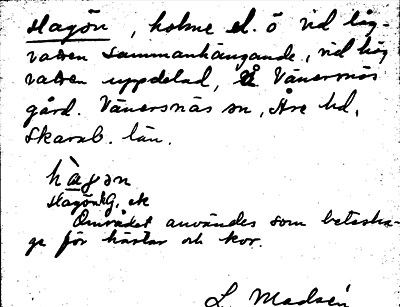 Hagön, holme el. ö vid låg-
vatten sammanhängande, vid hög
vatten uppdelad, å Vänersnäs
gård. Vänersnäs sn, Åse hd,
Skarab. län.
hàgən
Hagön
Området användes som betesha-
ge för hästar och kor.
L. Madsén